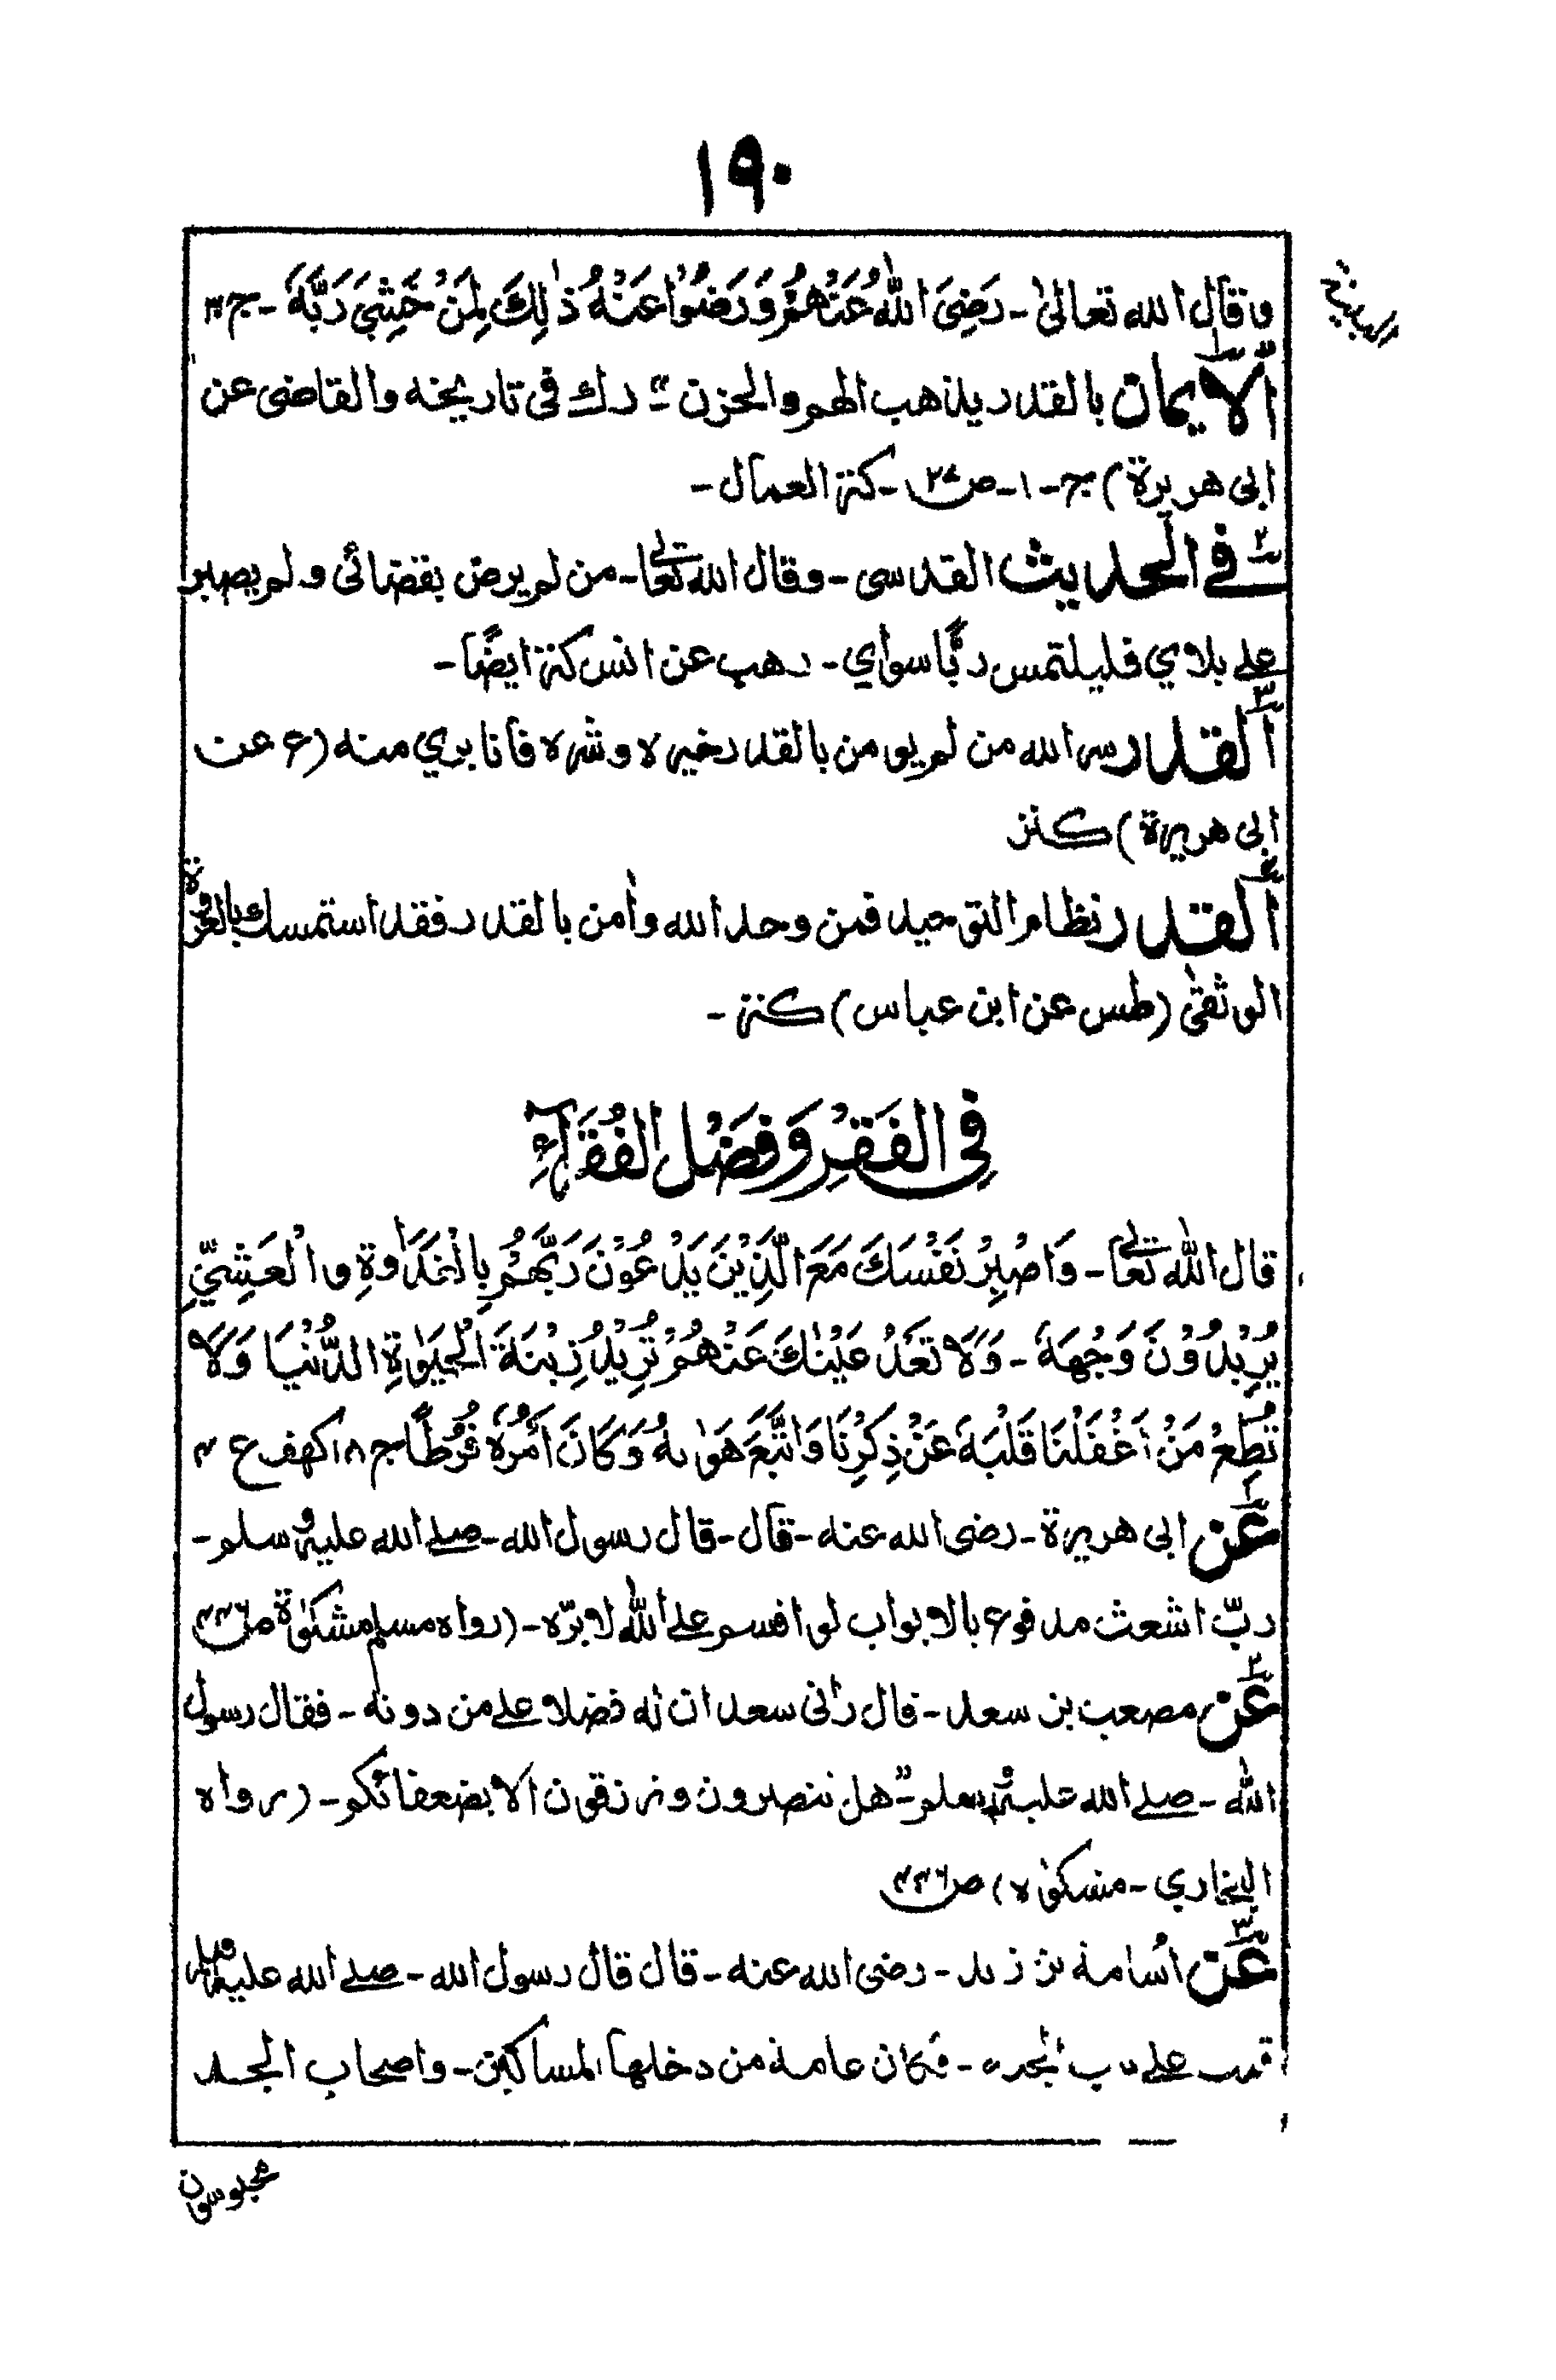 ١٩٠
وقال الله تعالىٰ - رَضِىَ اللّٰهُ عَنْهُمْ وَرَضُوْا عَنْهُ ذٰلِكَ لِمَنْ خَشِيَ رَبَّهٗ - ج ٣٠
١
اَلْاِيمان بالقدر يذهب الهم والحزن ـ" رك فى تاريخه والقاضى عن
ابى هريرة) ج - ١ - ص٢٧ - كنز العمال -
٢
فى الحديث القدسى - وقال الله تعالىٰ - من لم يرض بقضائى ولم يصبر
على بلاي فليلتمس ربًّا سواي - رهب عن انس كنز ايضًا -
٣
اَلقدر سر الله من لم يومن بالقدر خيره وشره فانا بري منه (ع عن
ابى هريرة) كنز
٤
اَلقدر نظام التوحيد فمن وحد الله واٰمن بالقدر فقد استمسك بالعروة
الوثقىٰ (طس عن ابن عباس) كنز -
فِى الفَقْرِ وَفَضْلِ الفُقَرَآءِ
قال اللّٰه تعالىٰ - وَاصْبِرْ نَفْسَكَ مَعَ الَّذِيْنَ يَدْعُوْنَ رَبَّهُمْ بِالْغَدَاوةِ وَالْعَشِيِّ
يُرِيْدُوْنَ وَجْهَهٗ - وَلَا تَعْدُ عَيْنٰكَ عَنْهُمْ تُرِيْدُ زِيْنَةَ الْحَيٰوةِ الدُّنْيَا وَلَا
تُطِعْ مَنْ اَغْفَلْنَا قَلْبَهٗ عَنْ ذِكْرِنَا وَاتَّبَعَ هَوٰىهُ وَكَانَ اَمْرُهٗ فُرُطًا ج ١٨ كهف ع ٤
١
عن ابى هريرة - رضى الله عنه - قال - قال رسول الله - صلے الله عليه وسلم -
ربّ اشعث مدفوع بالابواب لو اقسم على اللّٰه لابرّه - (رواه مسلم مشكوٰة ص٤٤٦
٢
عن مصعب بن سعد - قال راٰى سعد ان له فضلا على من دونه - فقال رسول
اللّٰه - صلے الله عليه وسلم - "هل تنصرون وترزقون الا بضعفائكم - (رواه
البخاري - مشكوٰه) ص٤٤٦
٣
عن اُسامة بن زيد - رضى الله عنه - قال قال رسول الله - صلے الله عليه وسلم
قمت على باب الجنه - فكان عامة من دخلها المساكين - واصحاب الجد
محبوسون